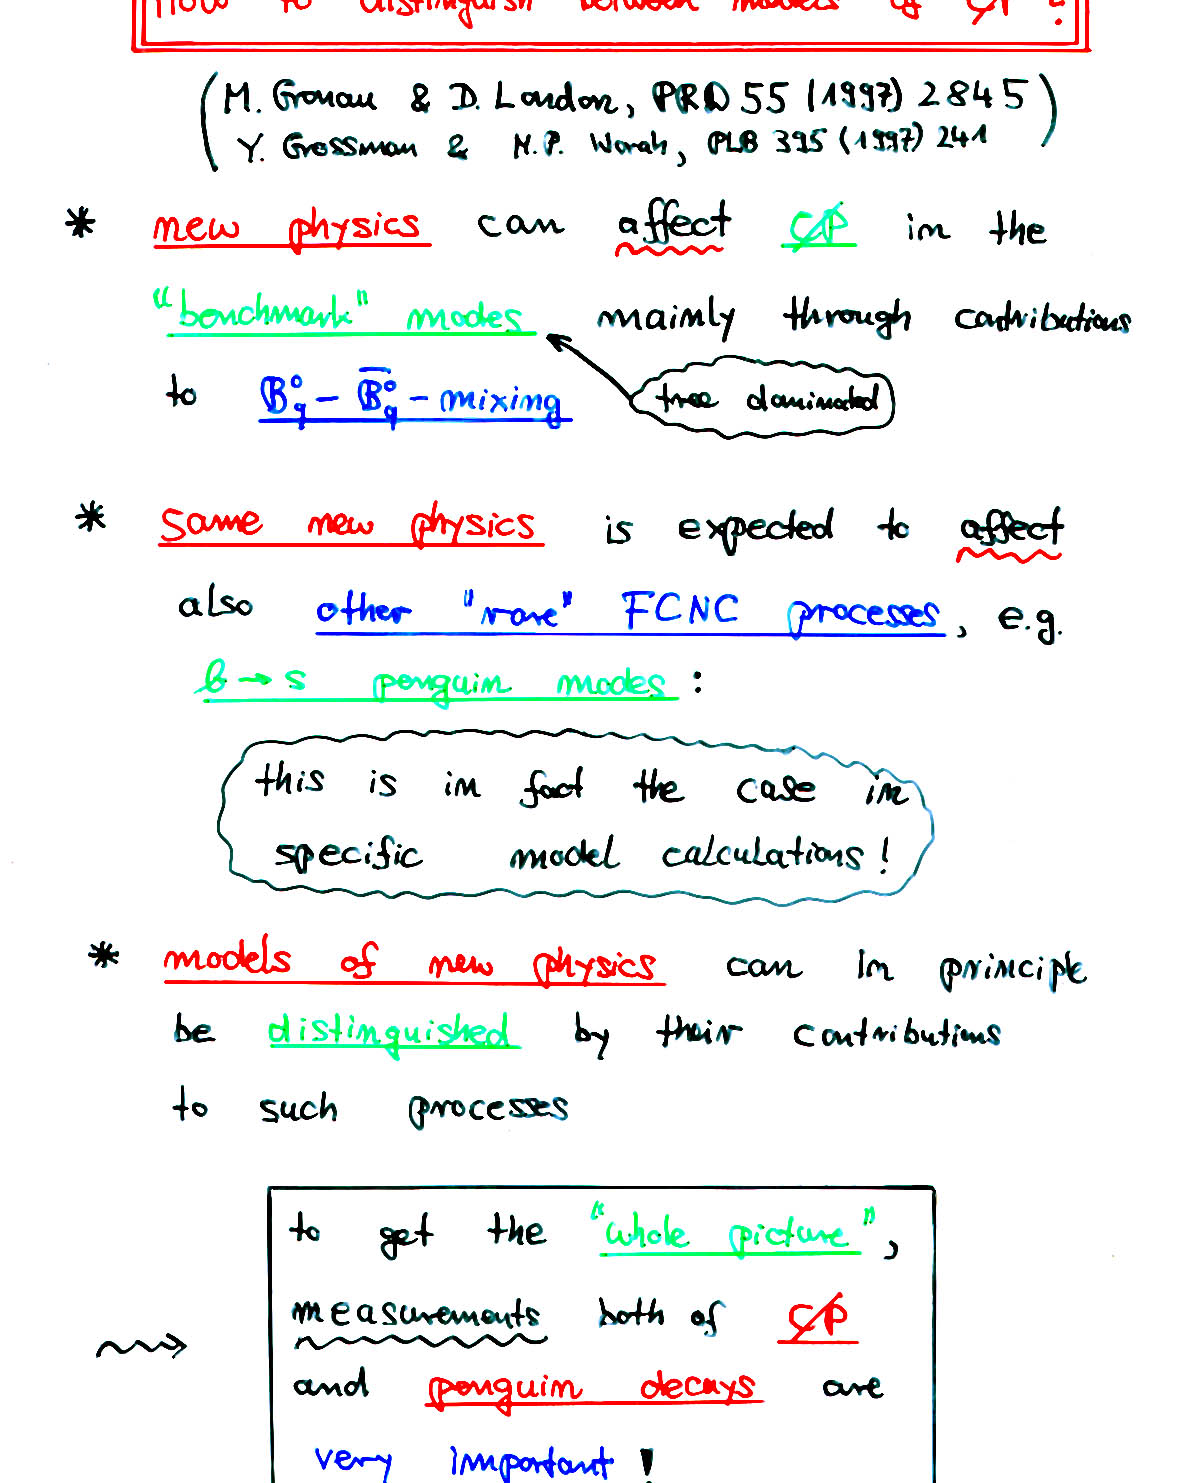 How to distinguish between models of C̸P̸ ?
(M. Gronau & D. London, PRD 55 (1997) 2845)
Y. Grossman & M.P. Worah, PLB 395 (1997) 241
* new physics can affect C̸P̸ in the
"benchmark" modes mainly through contributions
to B⁰q – B̄⁰q – mixing
tree dominated
* Same new physics is expected to affect
also other "rare" FCNC processes, e.g.
b → s penguin modes :
this is in fact the case in
specific model calculations !
* models of new physics can in principle
be distinguished by their contributions
to such processes
to get the "whole picture",
measurements both of C̸P̸
and penguin decays are
very important !